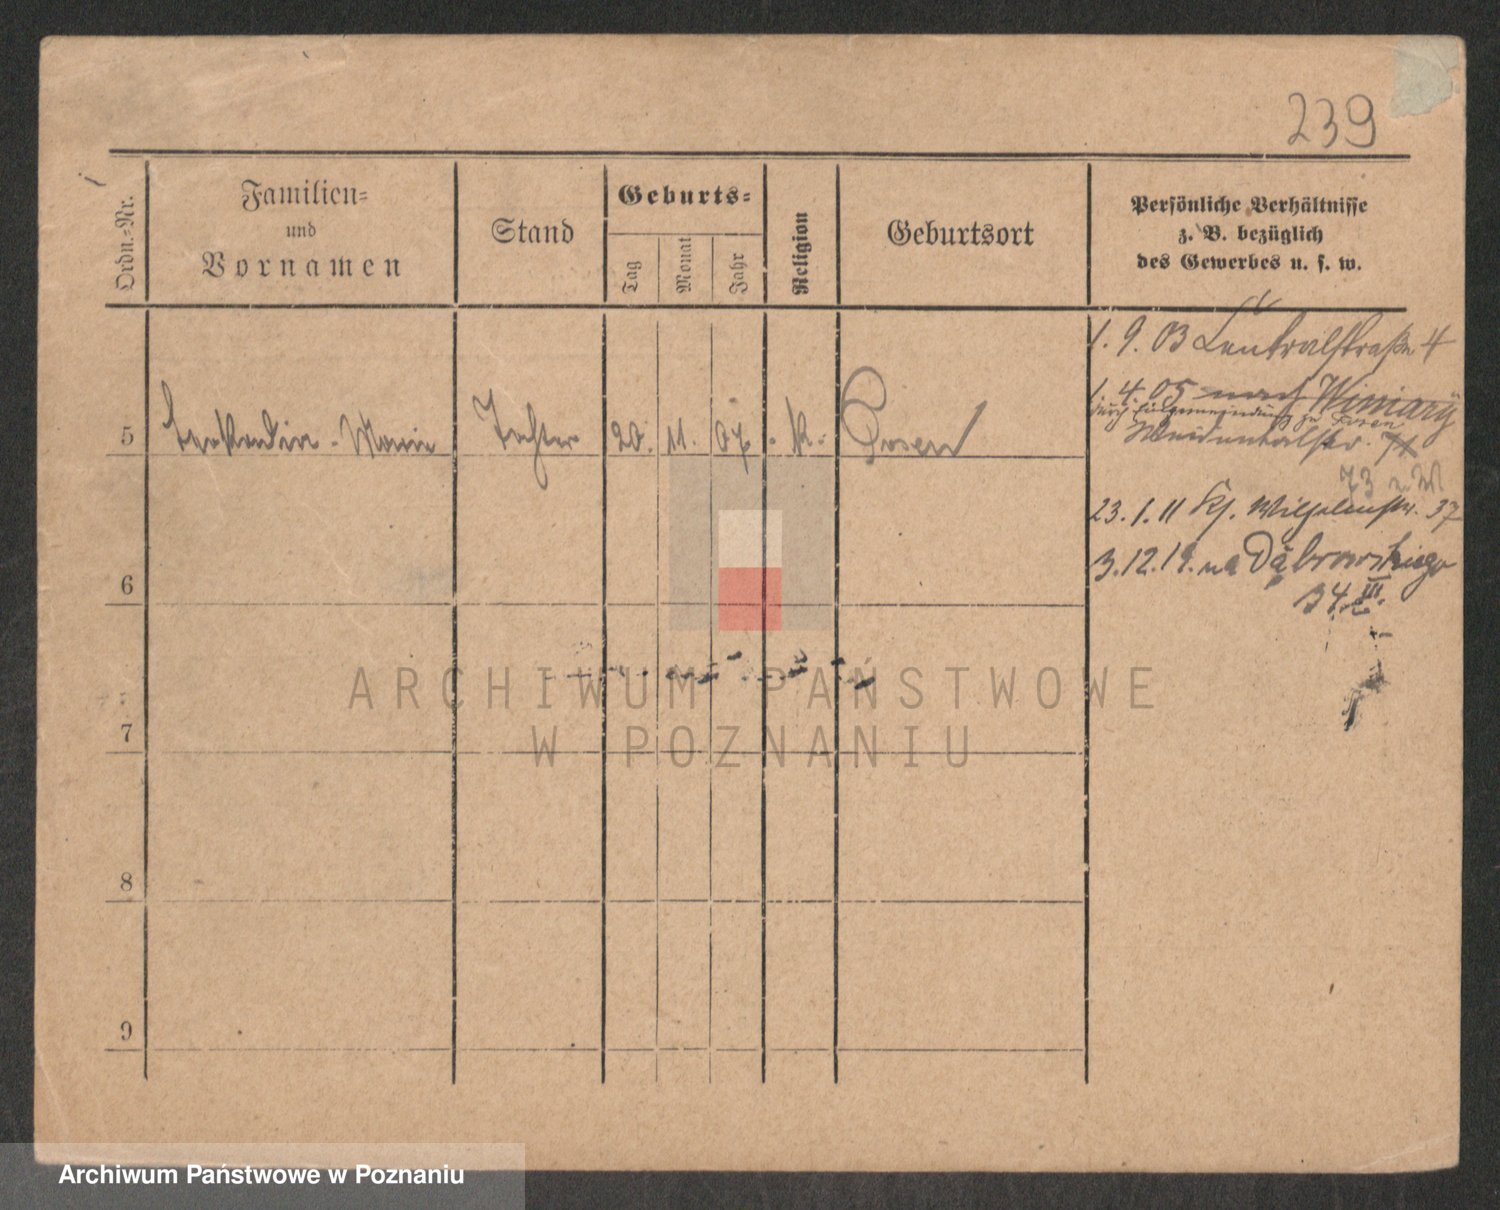 239
Ordn.-Nr.
Familien-
und
Vornamen
Stand
Geburts-
Tag
Monat
Jahr
Religion
Geburtsort
Persönliche Verhältnisse
z. B. bezüglich
des Gewerbes u. s. w.
1. 9. 03 Centralstraße 4
1. 4. 05 nach Winiary
durch Eingemeindung zu Posen
5 Leokadia - Marie Tochter 20. 11. 07 k. Posen
23. 1. 11 Kl. Wilhelmstr. 37
3. 12. 19. na Dąbrowskiego
34. III.
6
7
8
9
ARCHIWUM PAŃSTWOWE
W POZNANIU
Archiwum Państwowe w Poznaniu